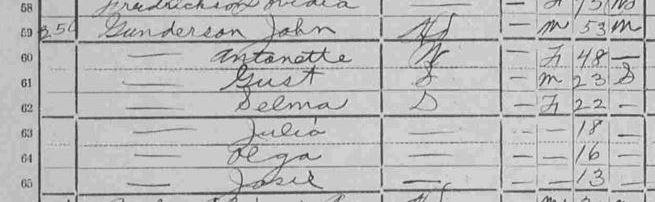 58 Fredrickson — — F 15
59 256 Gunderson John Hd — M 53 M
60 — Antonette W — F 48 —
61 — Gust S — M 23 S
62 — Selma D — F 22 —
63 — Julia — — — 18 —
64 — Olga — — — 16 —
65 — Josie — — — 13 —